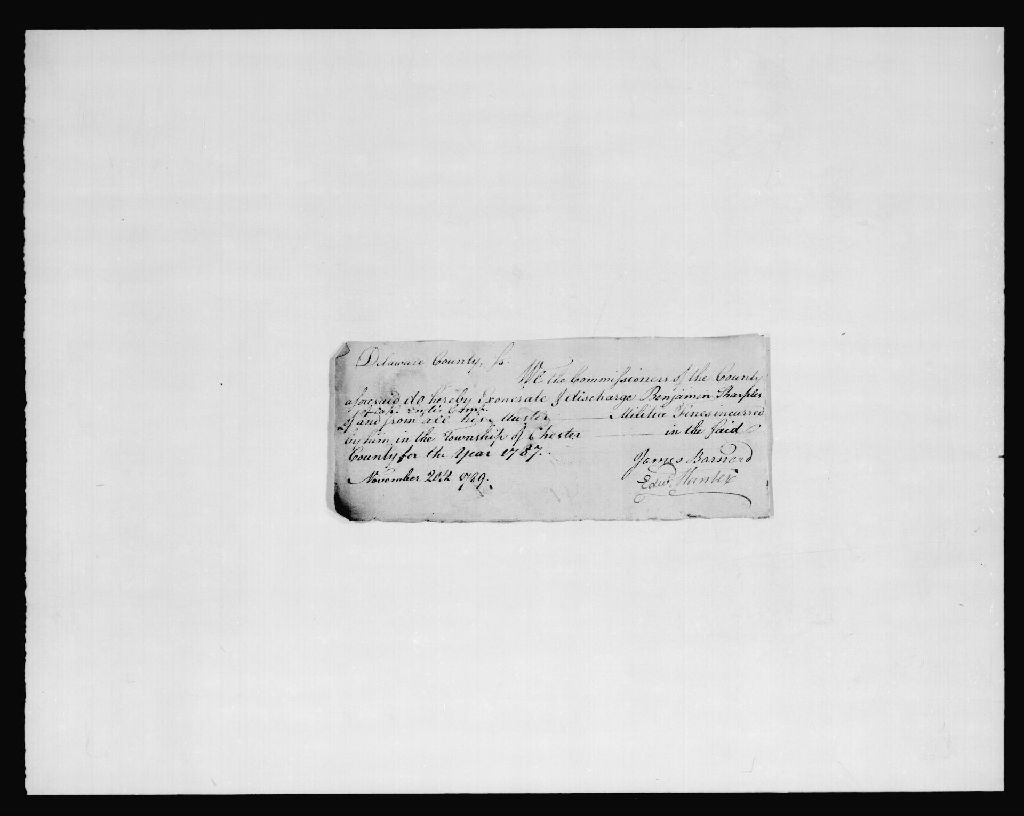 Delaware County, ss.
We the Commissioners of the County
aforesaid, do hereby Exonerate & discharge Benjamin Sharples
of and from all his Muster Militia Fines incurred
by him in the Township of Chester in the said
County for the Year 1787.
James Barnard
November 20th 1789.
Edwd. Hunter